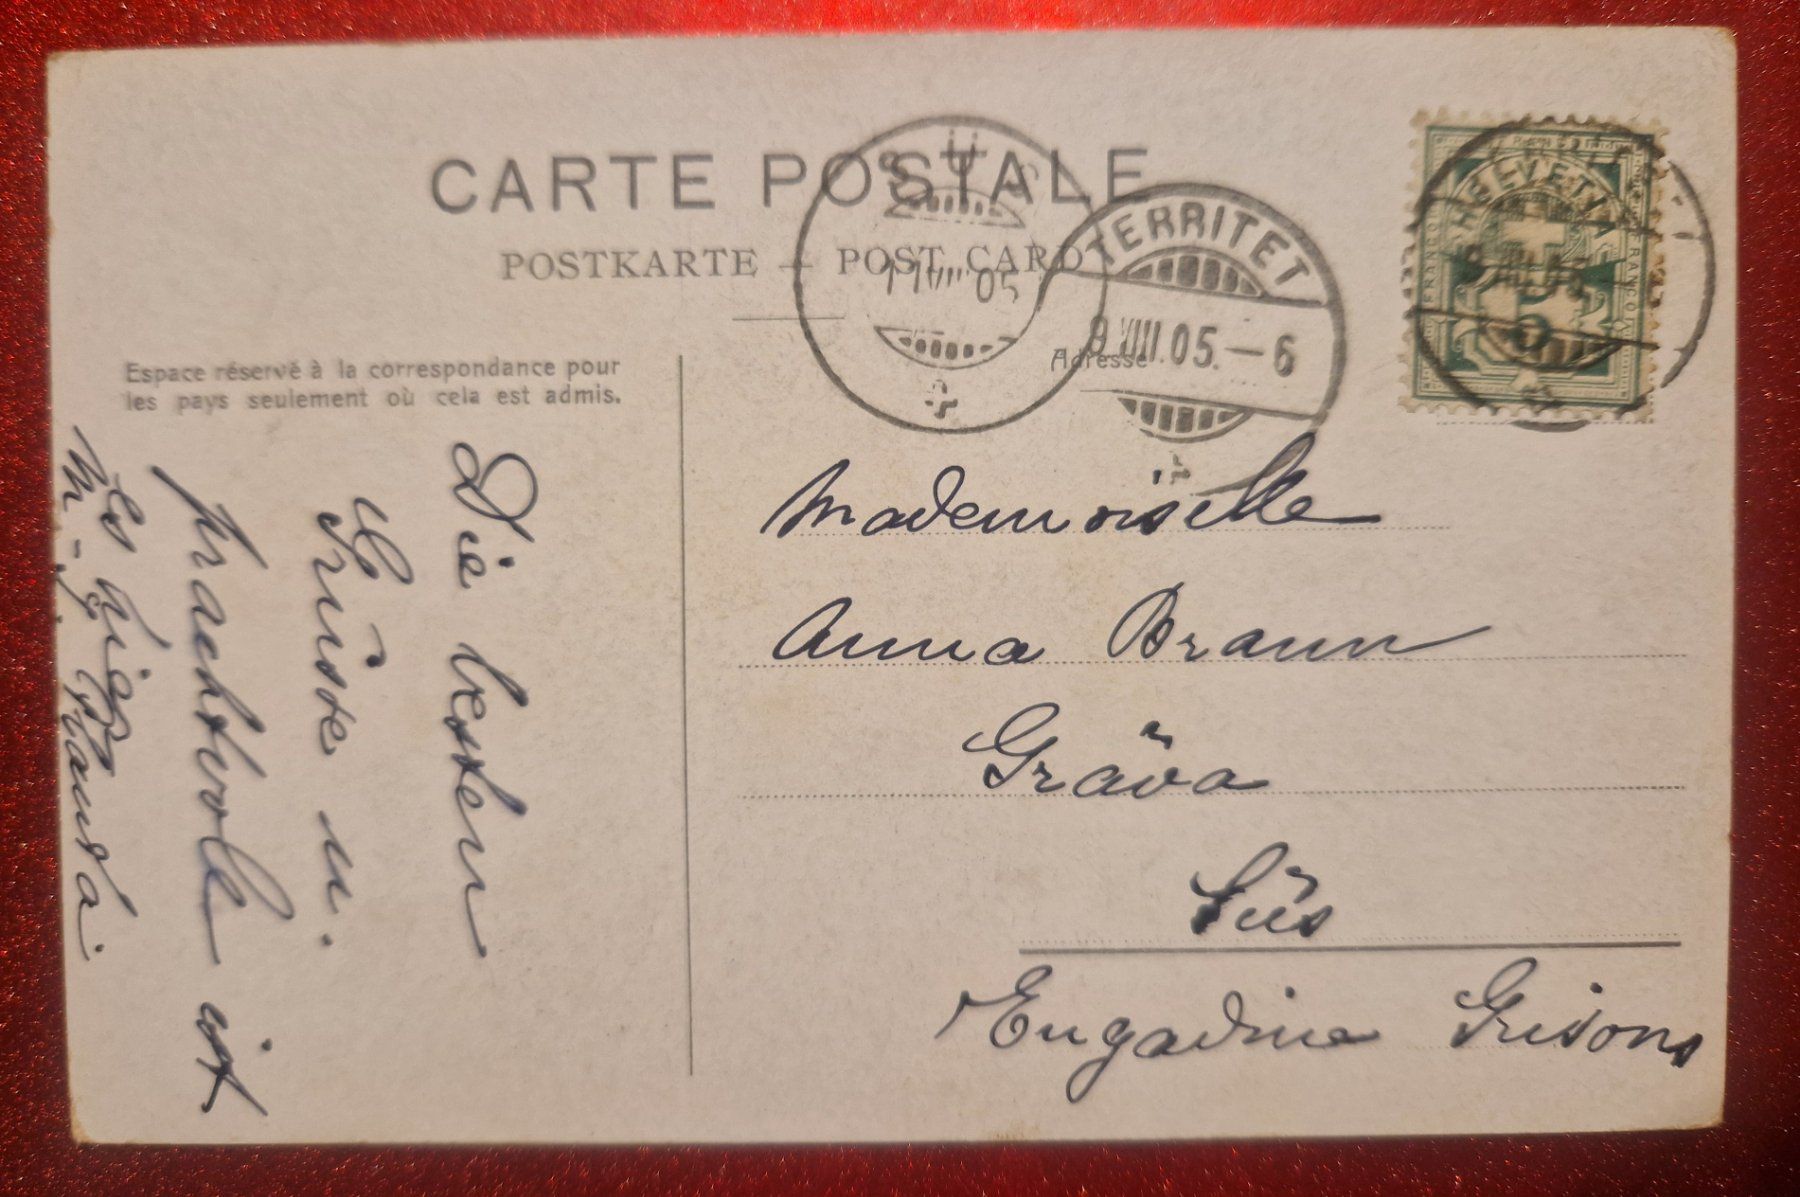 CARTE POSTALE
POSTKARTE — POST CARD
SÜS
11 VIII 05
TERRITET
9 VIII. 05. — 6
HELVETIA
FRANCO
FRANCO
5
Espace réservé à la correspondance pour
les pays seulement où cela est admis.
Adresse
Mademoiselle
Anna Braun
Gräva
Süs
Engadine Grisons
Die besten
Grüsse u.
prachtvolle ist
Es hier